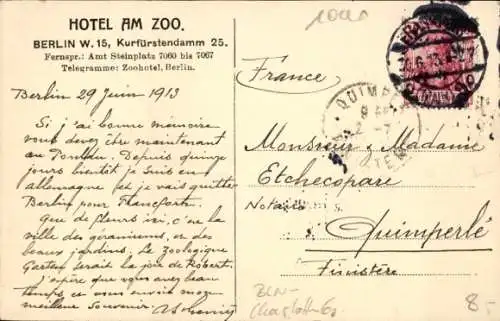 HOTEL AM ZOO.
BERLIN W. 15, Kurfürstendamm 25.
Fernspr.: Amt Steinplatz 7060 bis 7067
Telegramme: Zoohotel, Berlin.
Berlin 29 Juin 1913
Si j'ai bonne mémoire
vous devez être maintenant
au Pouldu. Depuis quinze
jours bientôt je suis en
allemagne et je vais quitter
Berlin pour Francfort.
Que de fleurs ici, c'est la
ville des géraniums et des
beaux jardins. Le Zoologique
Garten serait la joie de Robert.
J'espère que vous avez beau
temps et vous envoie mon
meilleur souvenir
1000
France
QUIMPERLÉ
Monsieur & Madame
Etchecopare
Notaire
à Quimperlé
Finistère
BLN-
Charlottenbg
8,-